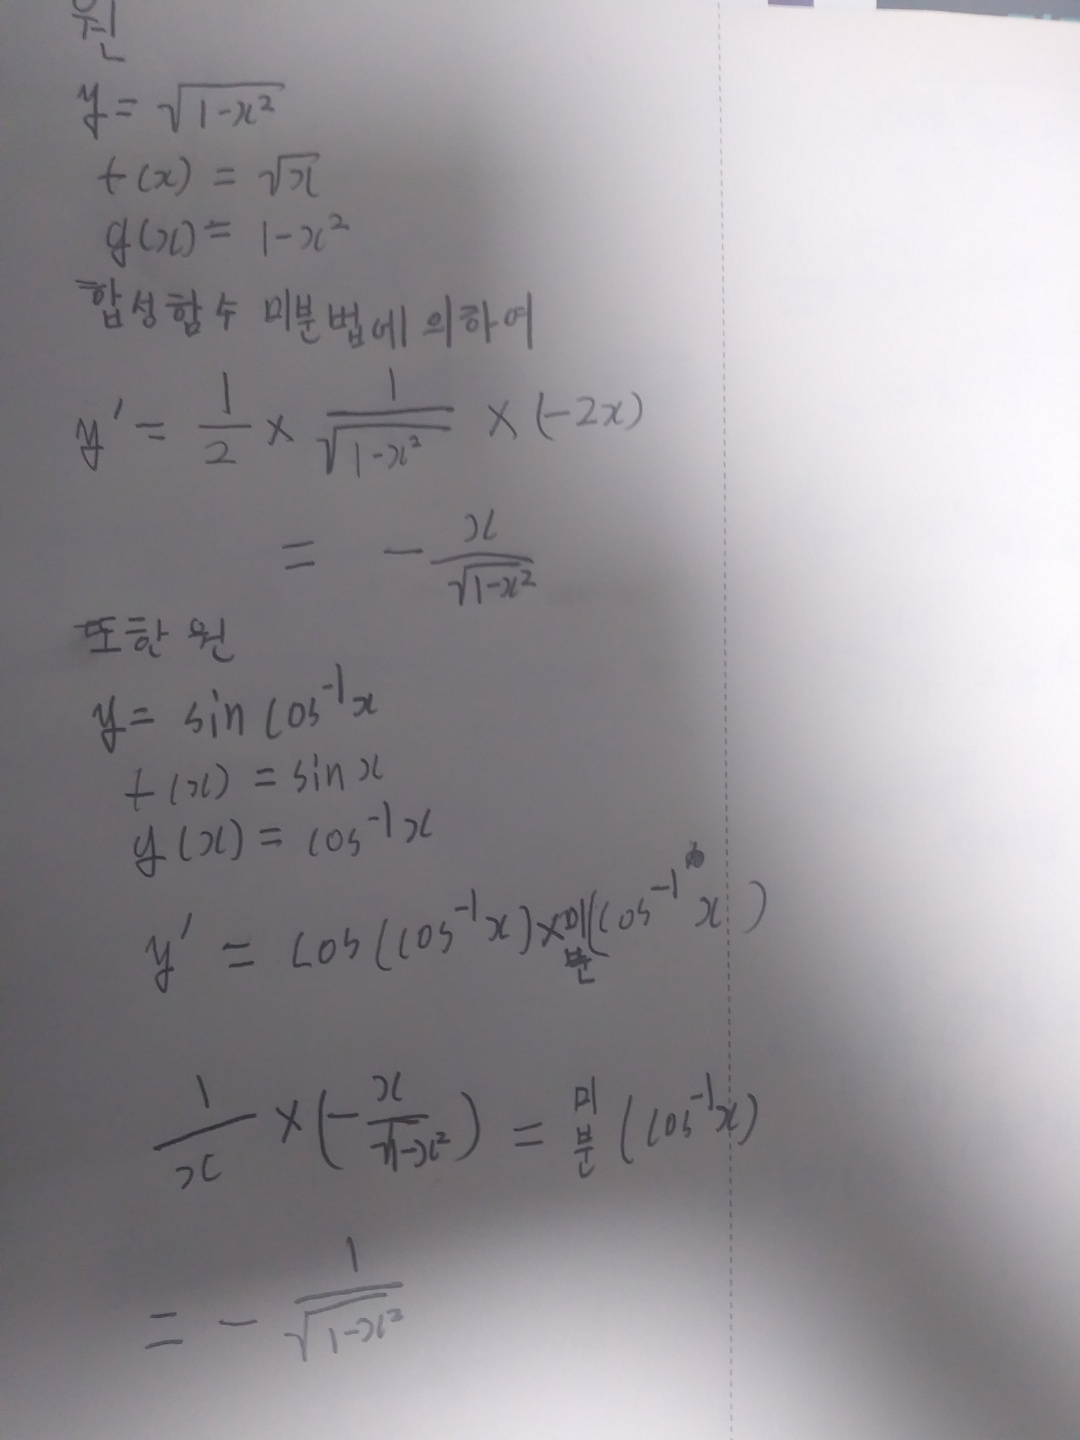 원
y = √(1-x²)
f(x) = √x
g(x) = 1-x²
합성함수 미분법에 의하여
y' = 1/2 × 1/√(1-x²) × (-2x)
= - x/√(1-x²)
또한 원
y = sin cos⁻¹x
f(x) = sin x
g(x) = cos⁻¹x
y' = cos(cos⁻¹x) × 미분(cos⁻¹x)
1/x × (- x/√(1-x²)) = 미분(cos⁻¹x)
= - 1/√(1-x²)